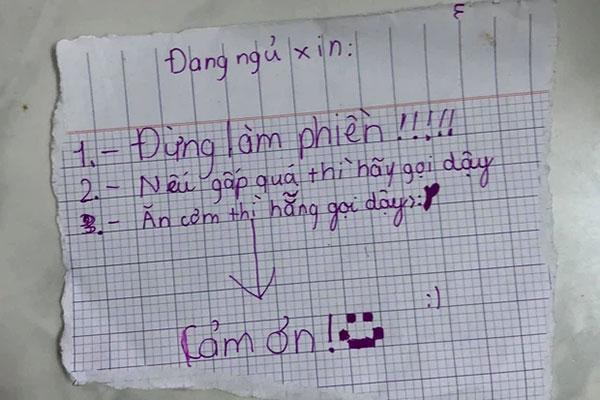 Đang ngủ xin:
1.- Đừng làm phiền !!!!!
2.- Nếu gấp quá thì hãy gọi dậy
3.- Ăn cơm thì hẵng gọi dậy>:
:)
Cảm ơn!